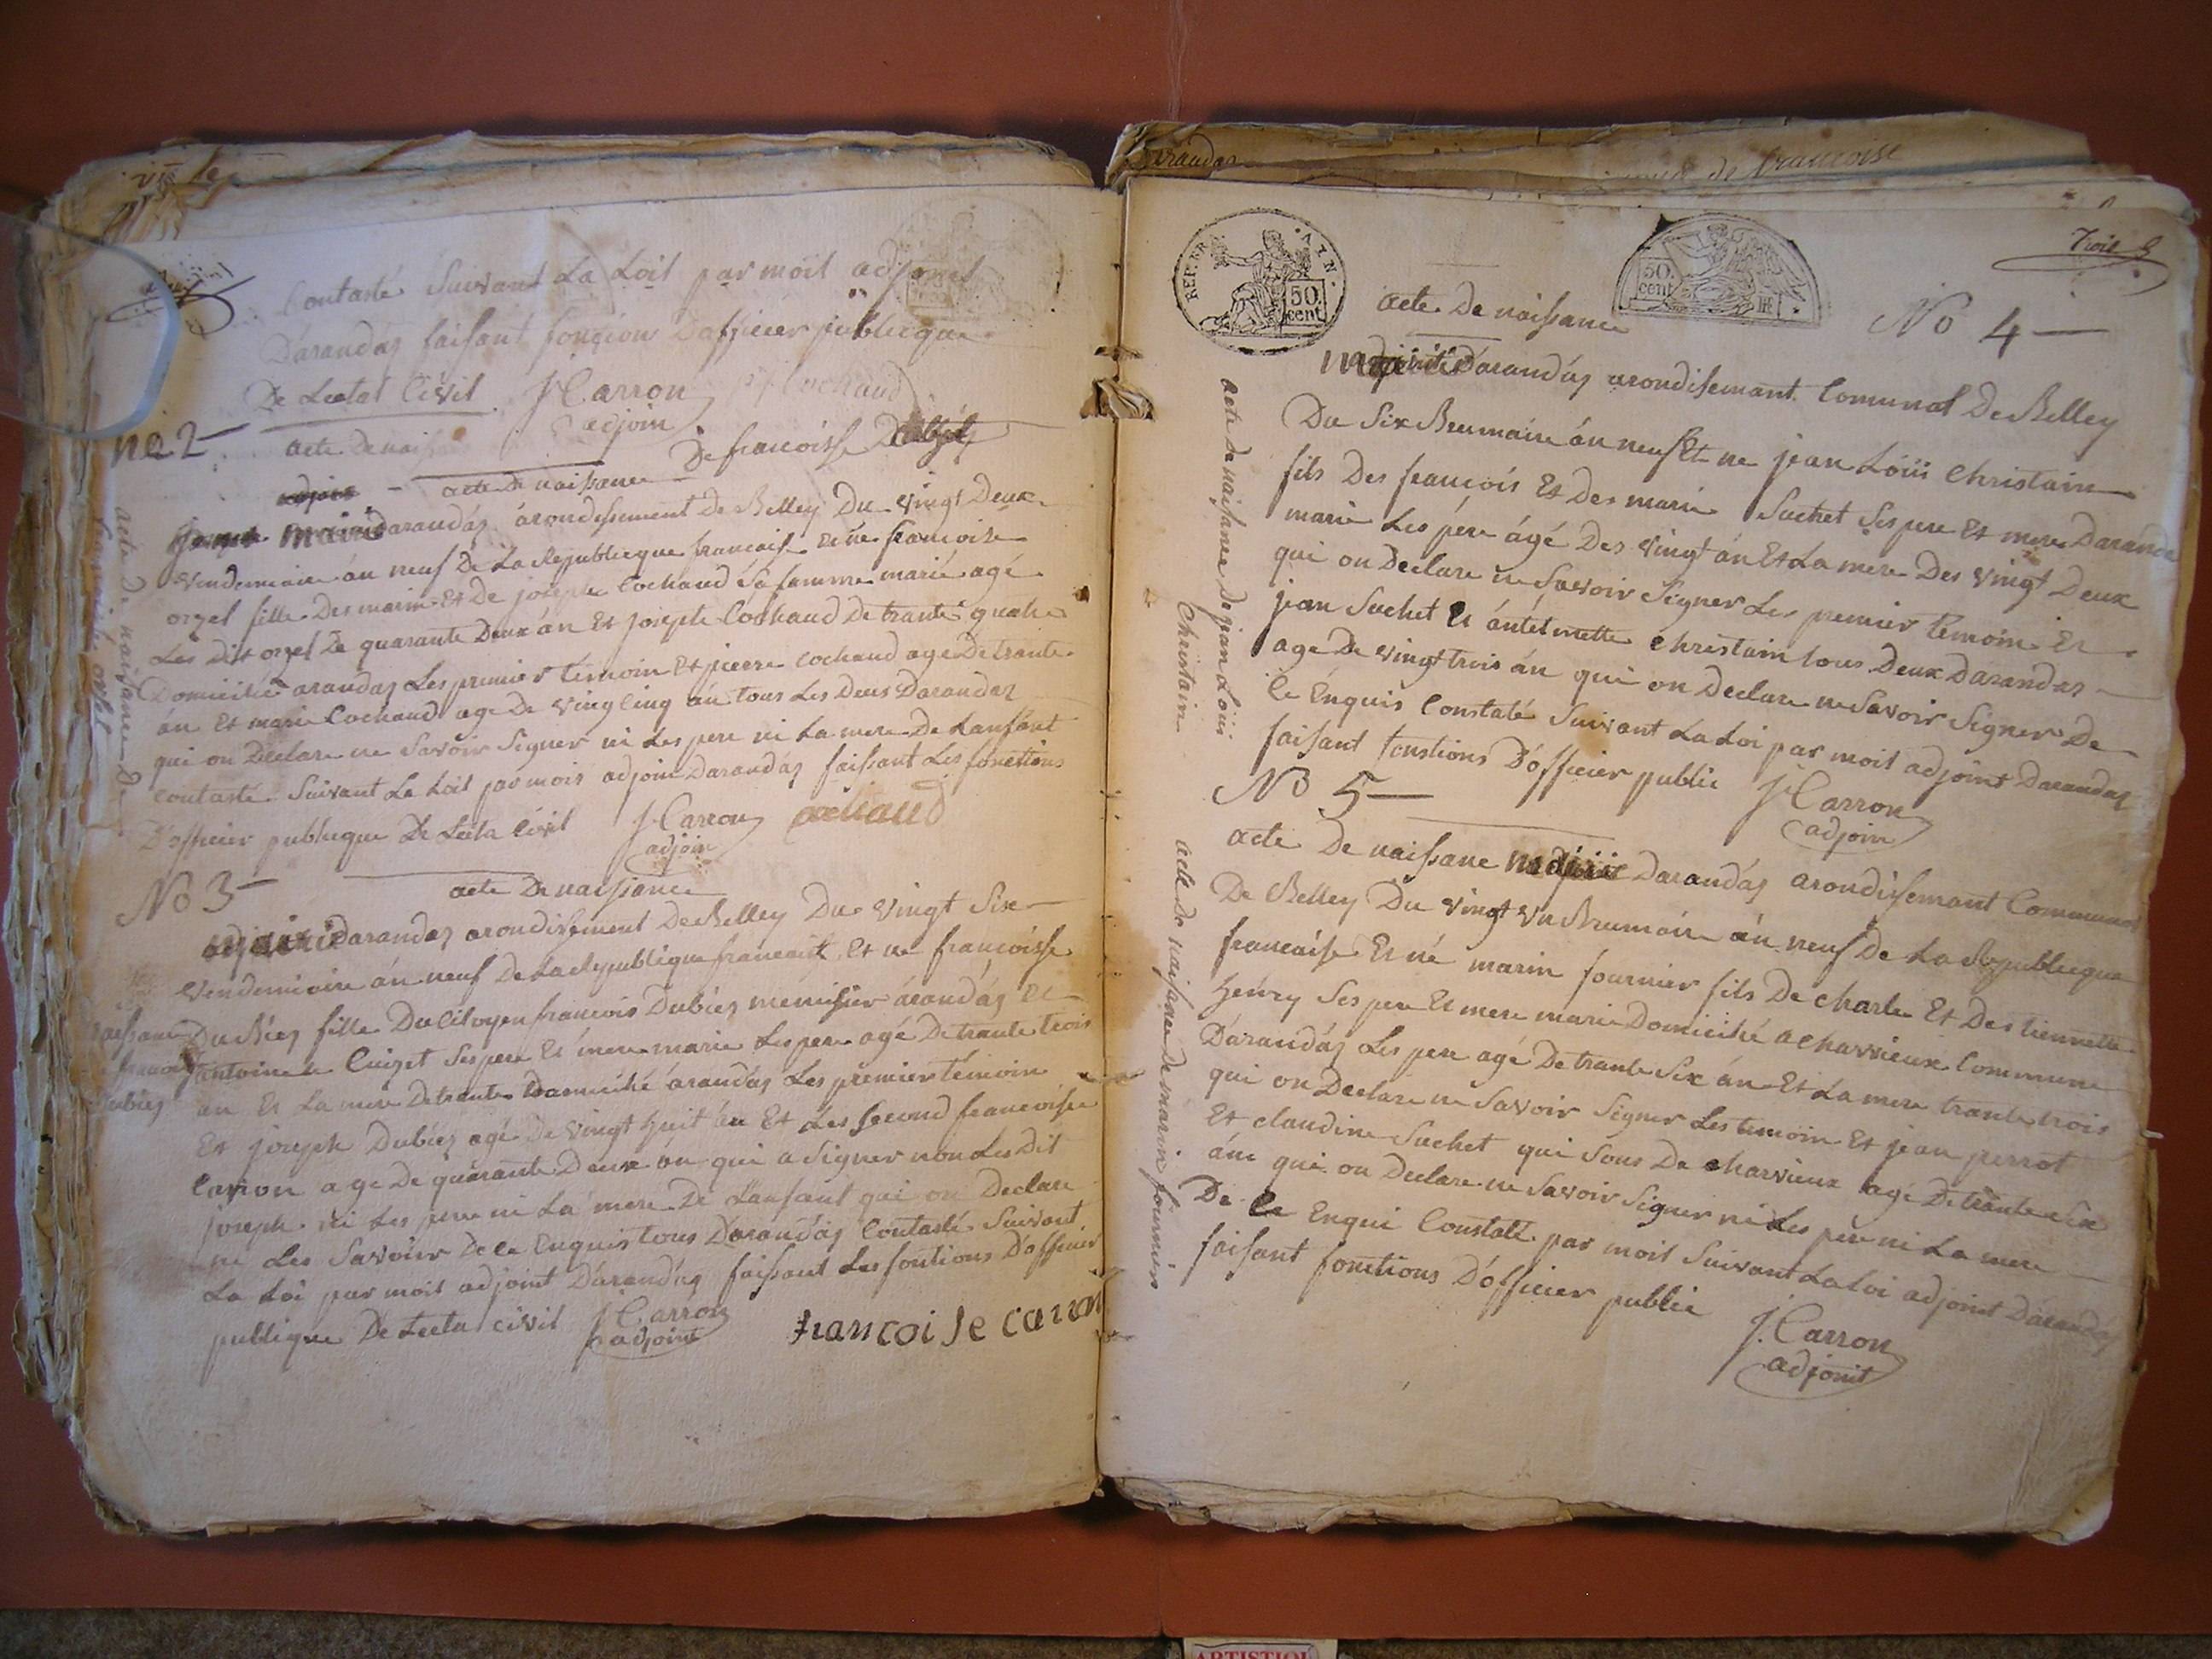 contasté Suivant La Loit par moit adjoint
Darandas faisant fonçions Dofficier publicque
De Leetat Civil J Carron
adjoin
no 2 acte De nais
De francoisse
adjoin acte De naissance
mairie Darandas arondissement De Belley Du vingt Deux
vendemiaire án neuf De La Republicque francaise et né francoise
orset fille Des marin Et De joseph Cochaud Sa famme marié agé
Les Dit orset De quarante Deux án Et joseph Cochaud De trante quatre
Domicilié arandas Les premier temoin Et pierre cochaud age De trante
an Et marie Cochaud age De vingt cinq an tous Les Deus Darandas
qui on Declare ne Savoir Signer ni Les pere ni La mere De Lanfant
contasté Suivant La Loit par mois adjoin Darandas faissant Les fonctions
Dofficier publicque De Leeta Civil J. Carron cochaud
adjoin
acte De naissance De
No 3 acte De naissance
mairie Darandas arondissement De Belley Du vingt Six
Vendemiaire án neuf De La Republique francaisse Et ne francoisse
Du Biez fille Du Citoyen francois Dubiez menuisier árandás Et
Antoinete Cuizet Ses pere Et mere marie Les pere agé De trante trois
an Et La mere De trante Domicilié árandás Les premier témoin
Et joseph Dubiez agé De vingt huit án Et Les Second francoisse
Carron age De quarante Deux án qui a Signer non Les Dit
joseph ni Les pere ni La mere De Lanfant qui on Declare
ne Les Savoir De ce Enquis tous Darandás Contasté Suivant
La Loi par moit adjoint Darandás faissant Les fontions Dofficier
publique De Leeta civil J Carron
adjoint
francoise caron
naissance
francois
dubiez
Trois
REP. FR. 50. cent
50. cent
acte De naissance No 4
mairie Darandás arondisemant Comunal De Belley
Du Six Brumaire án neuf Et ne jean Loüi Christain
fils Des francois Et Des marie Suchet Ses pere Et mere Darandas
marie Les pére ágé Des vingt án Et La mere Des vingt Deux
qui on Declare ne Savoir Signer Les premier témoin Et
jean Suchet Et ántelmette Christain tous Deux Darandas
age De vingt trois án qui on Declare ne Savoir Signer De
ce Enquis Constaté Suivant La Loi par moit adjoint Darandas
faisant fonstions Dofficier public J Carron
adjoin
acte De naisance De jean Loüi
Christain
No 5
acte De naissance mairie Darandás arondissemant Communal
De Belley Du vingt Un Brumaire án neuf De La Republicque
francaisse Et né marin fournier fils De charle Et Des tiennette
henry Ses pere Et mere marie Domicilié a charvieux Commune
Darandás Les pere agé De trante Six án Et La mere trante trois
qui on Declare ne Savoir Signer Les temoin Et jean perrot
Et claudine Suchet qui Sons De charvieux agé De trante Six
áns qui on Declare ne Savoir Signer ni Les pere ni La mere
De ce Enqui Constaté par moit Suivant La Loi adjoint Darandás
faisant fonctions Dofficier public
J. Carron
adjonit
acte De naissance De marin fournier